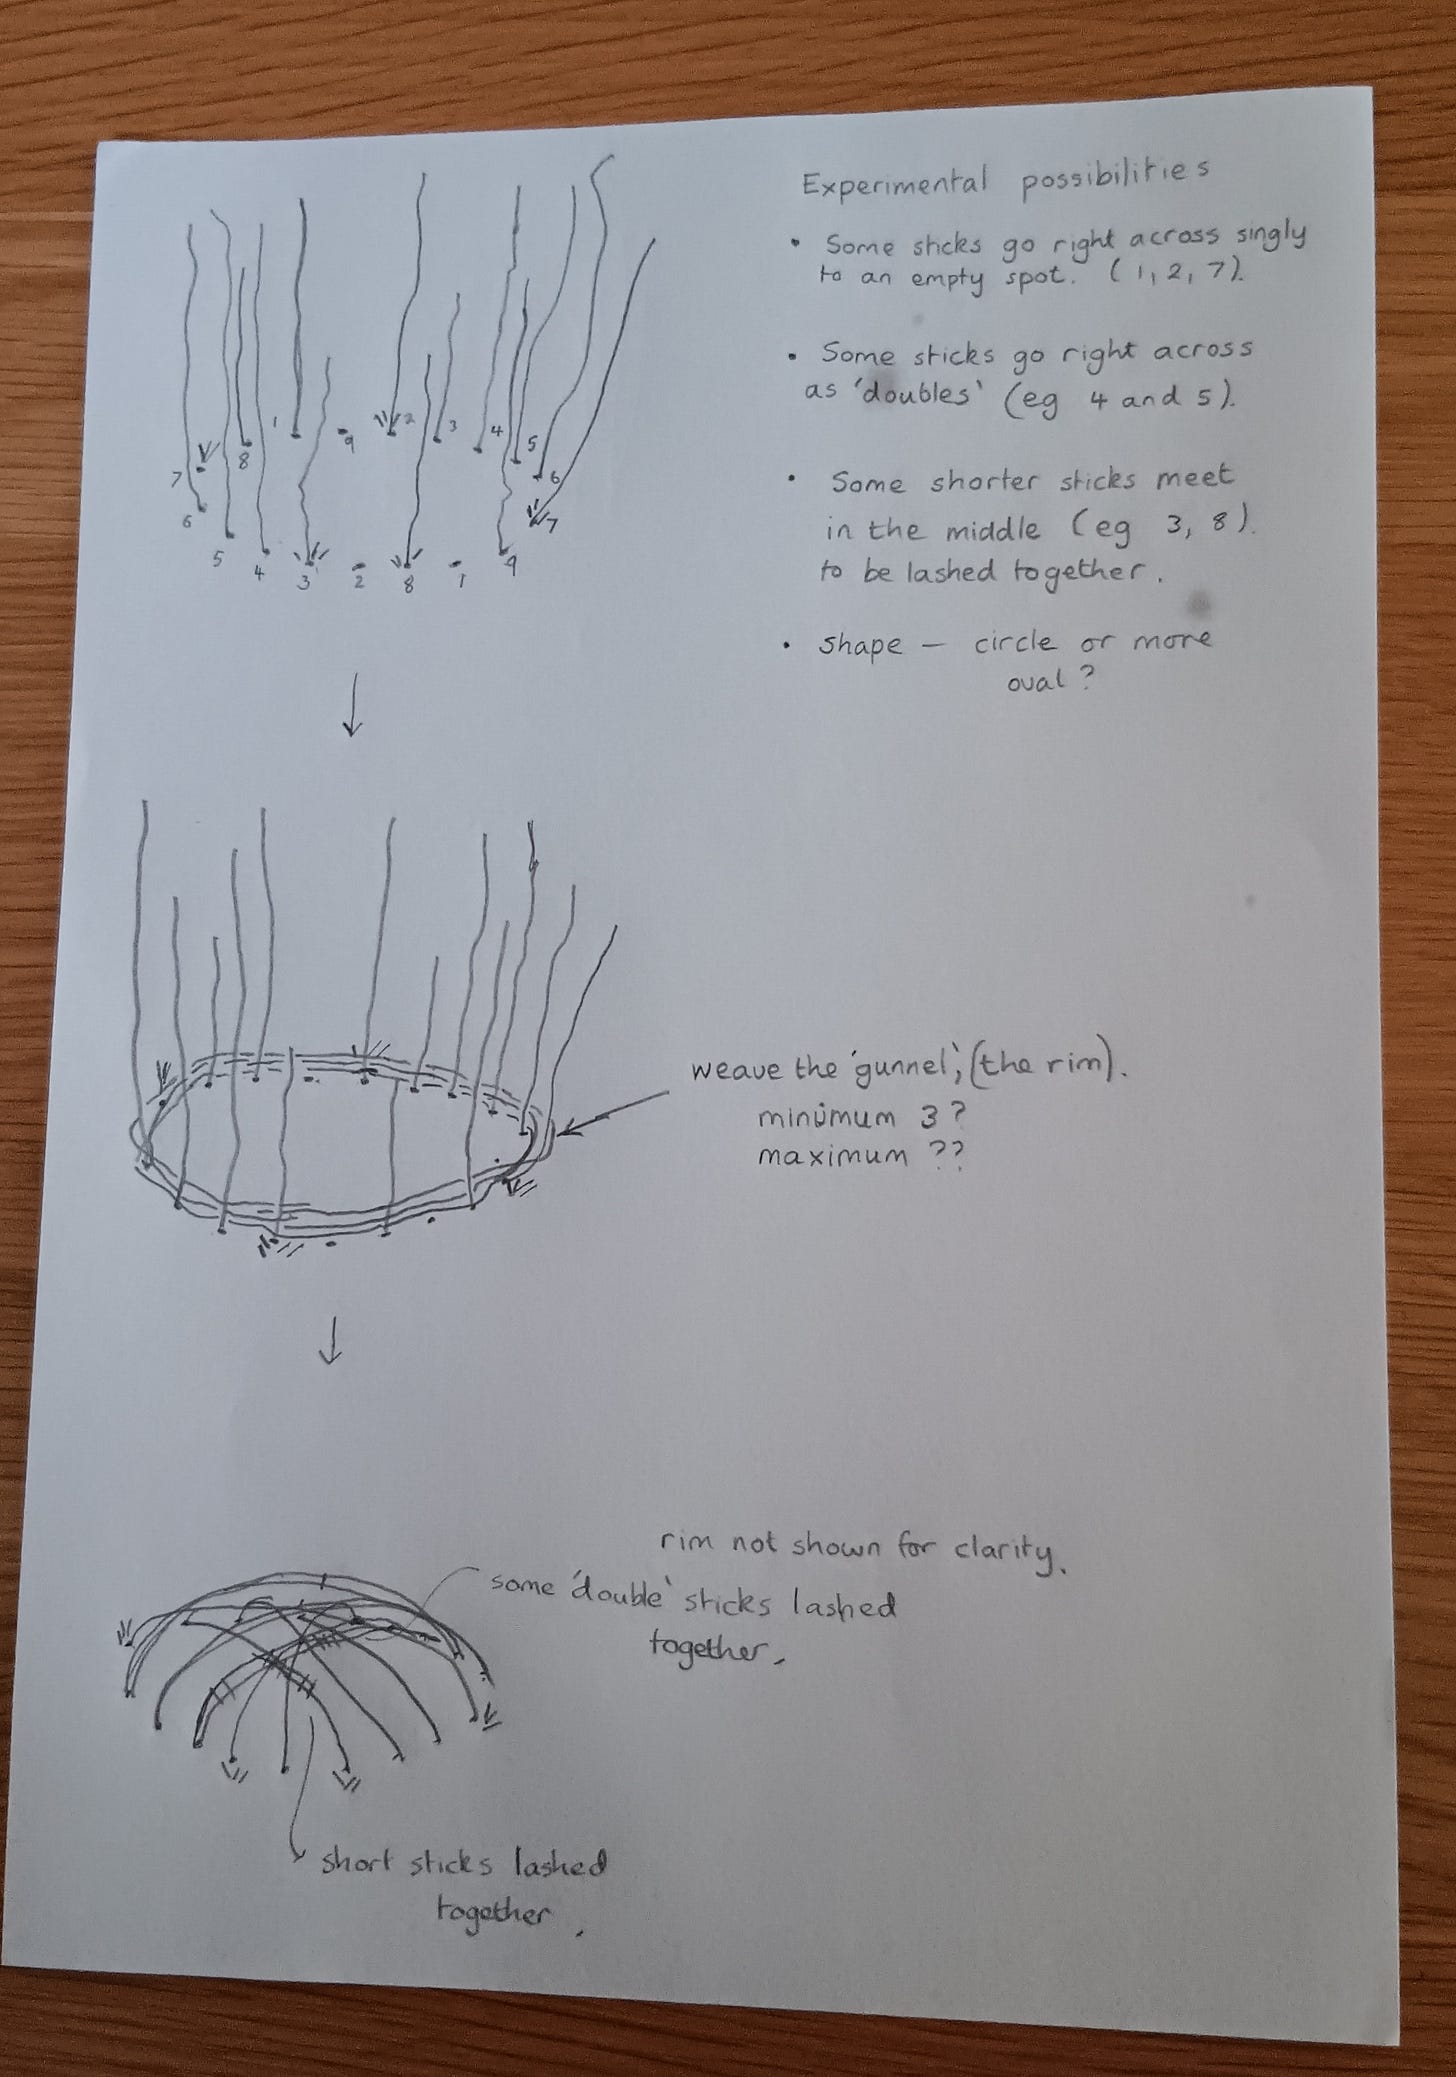 Experimental possibilities
• Some sticks go right across singly
to an empty spot. (1, 2, 7).
• Some sticks go right across
as 'doubles' (eg 4 and 5).
• Some shorter sticks meet
in the middle (eg 3, 8).
to be lashed together.
• shape – circle or more
oval?
1
9
2
3
4
5
6
7
8
7
6
5
4
3
2
8
1
9
weave the 'gunnel', (the rim).
minimum 3?
maximum ??
rim not shown for clarity.
some 'double' sticks lashed
together.
short sticks lashed
together.